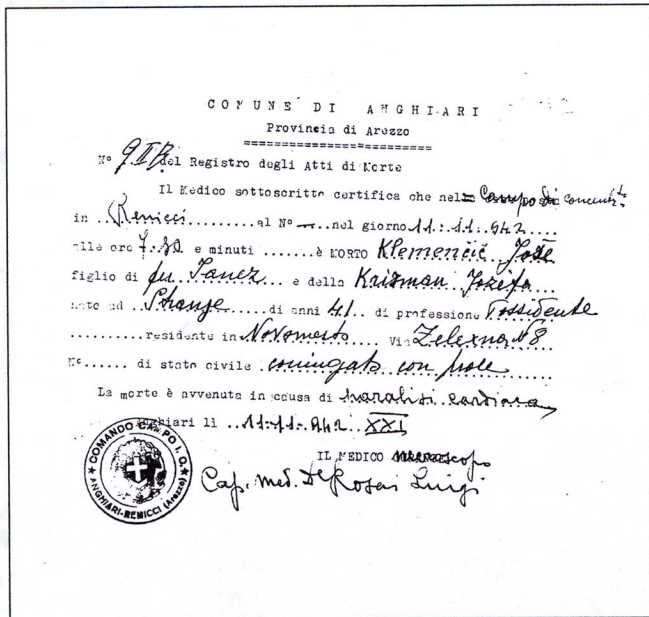 COMUNE DI ANGHIARI
Provincia di Arezzo
Nº 9.II B del Registro degli Atti di Morte
Il Medico sottoscritto certifica che nel Campo di concent.
in Renicci al Nº — nel giorno 11.11.942
alle ore 7.30 e minuti ....... è MORTO Klemenčič Jože
figlio di fu Janez e della Krizman Jozefa
nato ad Stranje di anni 41 di professione Possidente
residente in Novomesto Via Zelezna Nº 8
Nº ...... di stato civile coniugato con prole
La morte è avvenuta in causa di paralisi cardiaca
Anghiari lì 11.11.942 XXI
IL MEDICO
Cap. med. Dr Rosai Luigi
COMANDO CAMPO I. C.
ANGHIARI-RENICCI (Arezzo)